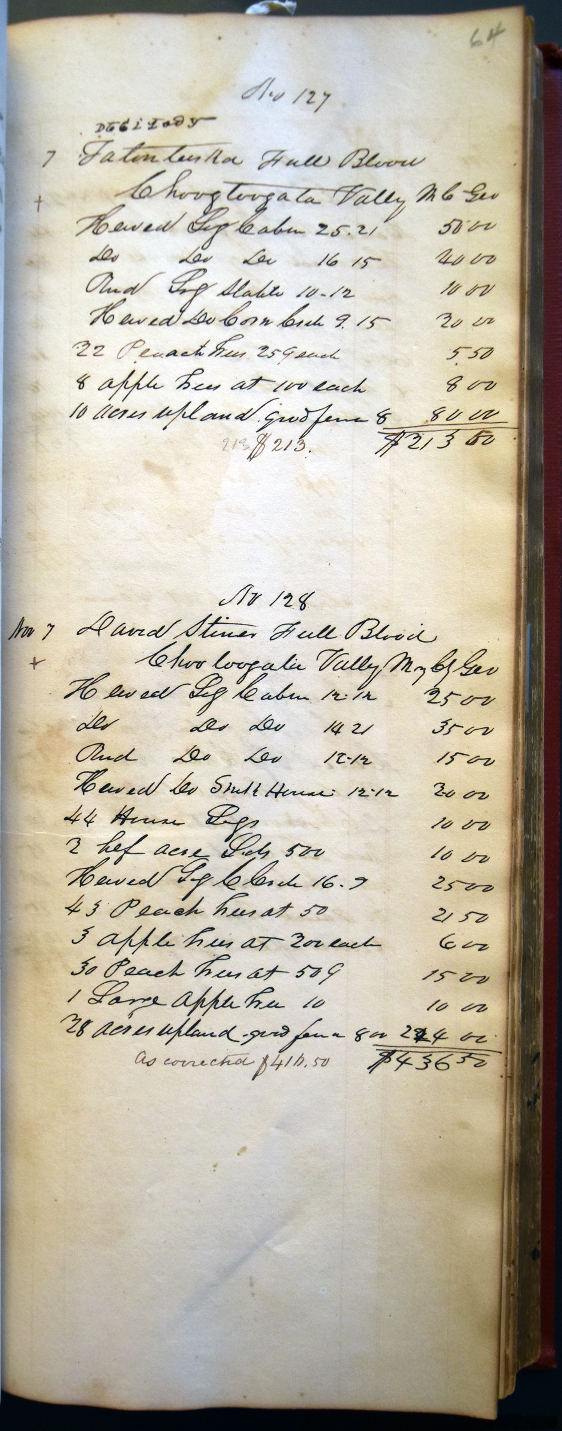 64
No 127
7 Tatontuska Full Blood
+ Choogtoogata Valley M C Geo
Hewed Log Cabin 25.21 50 00
Do Do Do 16 15 40 00
Rnd Log Stable 10-12 10 00
Hewed Do Corn Crib 9.15 20 00
22 Peach trees 25¢ each 5.50
8 apple trees at 100 each 8 00
10 acres upland good fence 8 80 00
213 $213. $213 50
No 128
Nov 7 David Stiner Full Blood
+ Chootoogata Valley Geo
Hewed Log Cabin 12-12 25 00
Do Do Do 14 21 35 00
Rnd Do Do 12-12 15 00
Hewed Do House 12-12 20 00
44 House Logs 10 00
2 half acre Lots 500 10 00
Hewed Log C Crib 16.9 25 00
43 Peach trees at 50 21 50
3 apple trees at 200 each 6 00
30 Peach trees at 50¢ 15 00
1 Large Apple tree 10 10 00
28 acres upland good fence 8 00 224 00
As corrected $416.50 $436 50